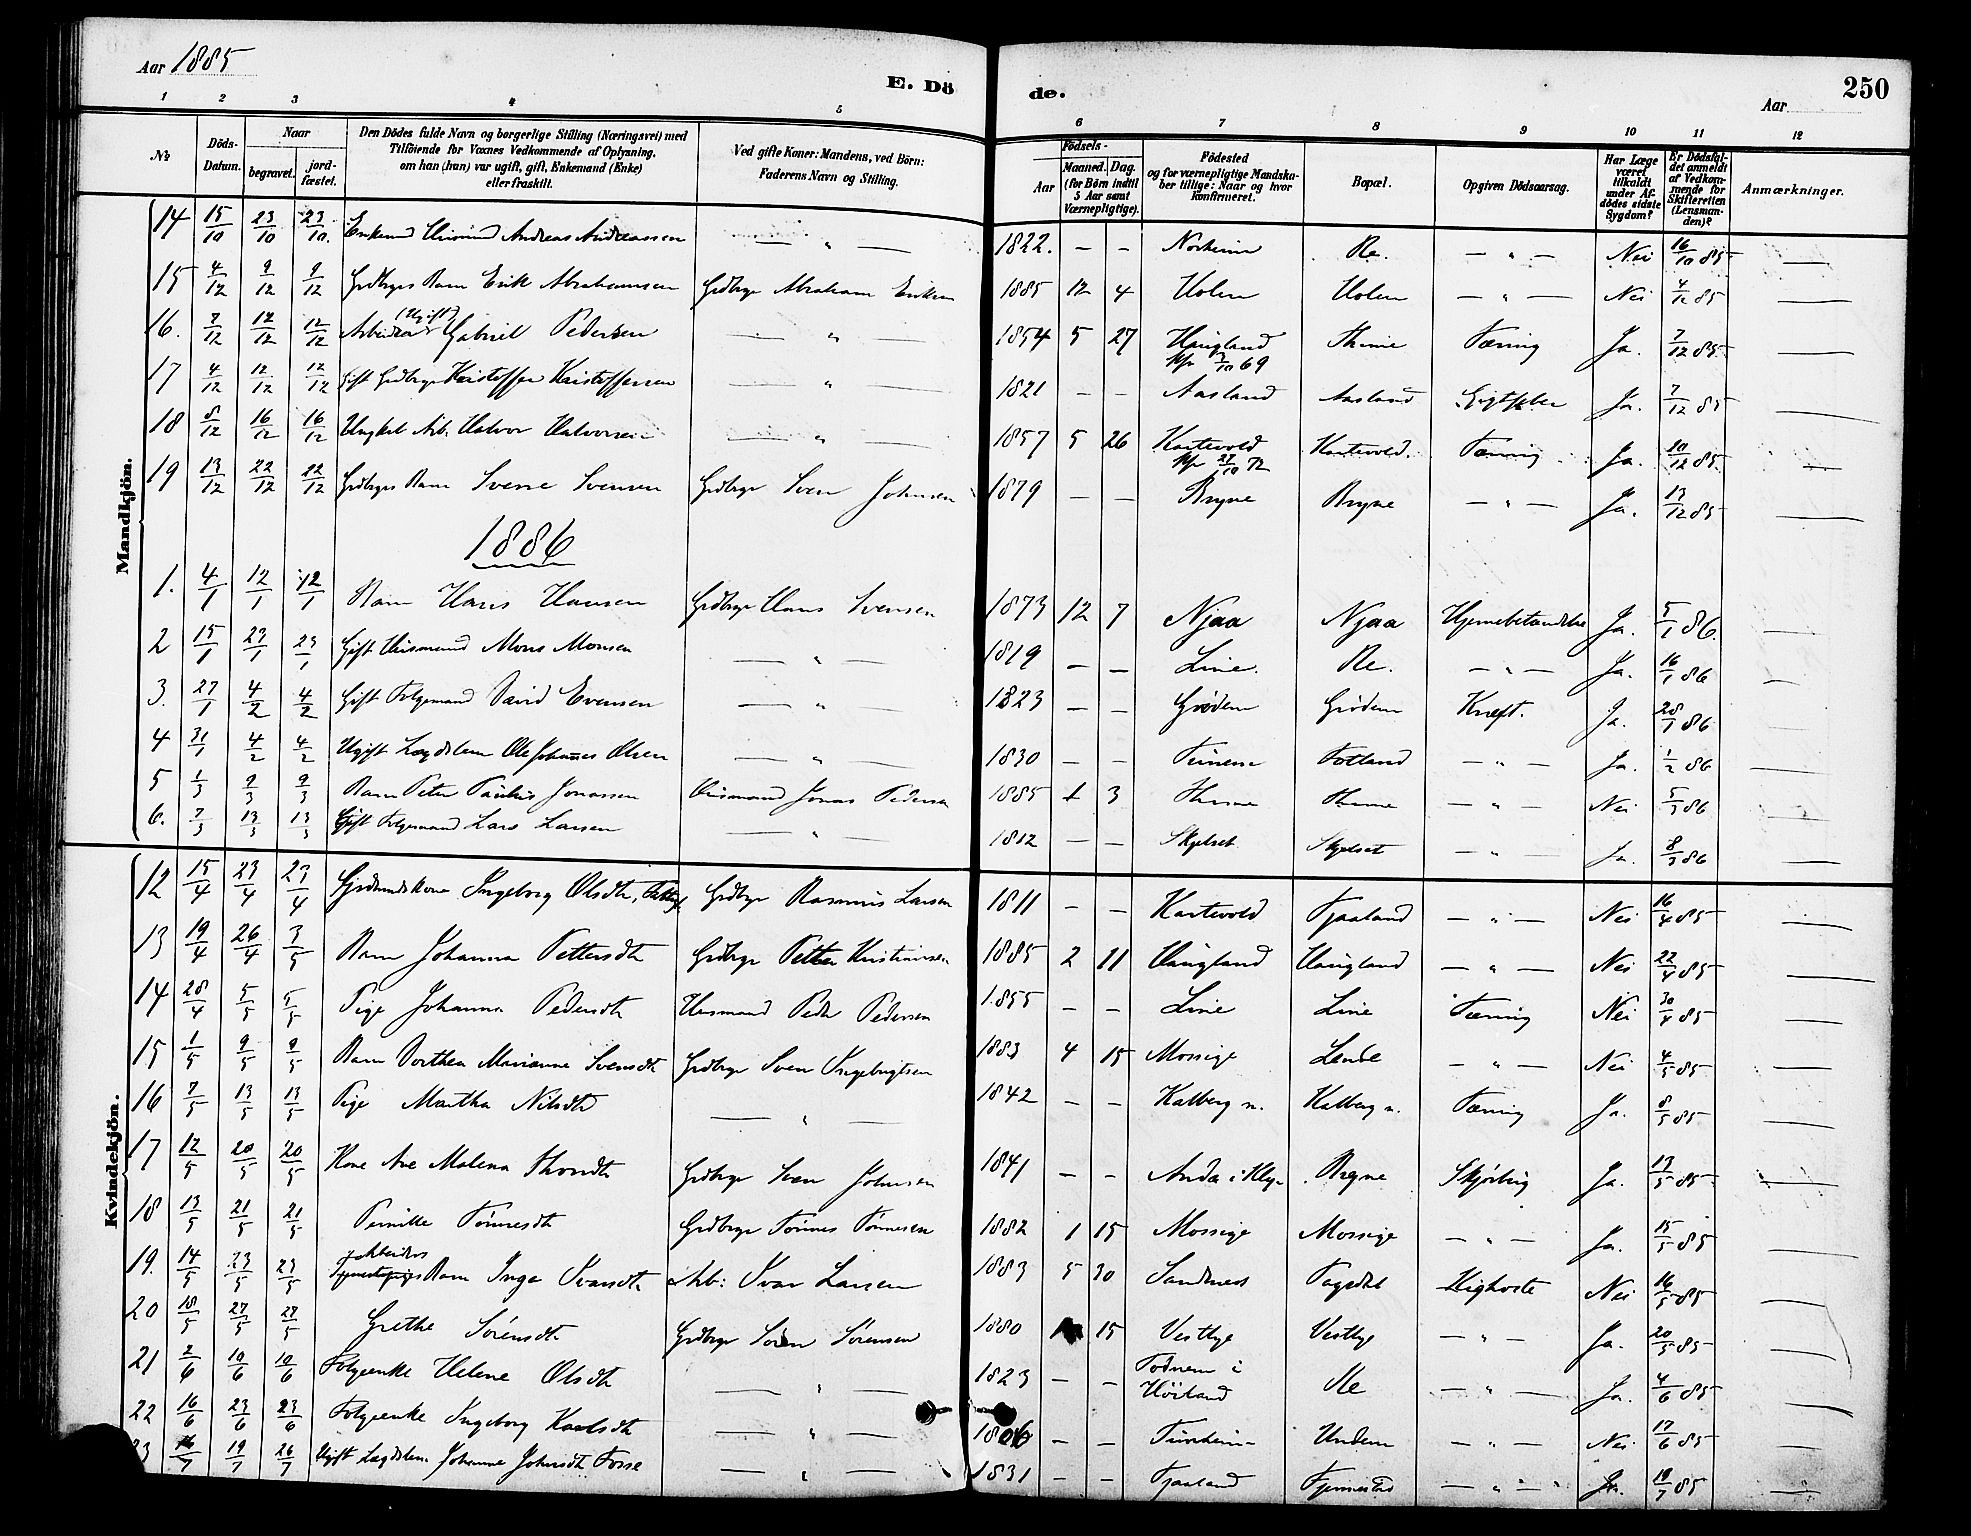 Aar 1885
E. Dö de.
Aar
250
1 2 3 4 5 6 7 8 9 10 11 12
№
Döds-Datum.
Naar
begravet.
jord-fæstet.
Den Dödes fulde Navn og borgerlige Stilling (Næringsvei) med
Tilföiende for Voxnes Vedkommende af Oplysning,
om han (hun) var ugift, gift, Enkemand (Enke)
eller fraskilt.
Ved gifte Koner: Mandens, ved Börn:
Faderens Navn og Stilling.
Födsels-
Aar
Maaned. Dag.
(for Börn indtil
5 Aar samt
Værnepligtige).
Födested
og for værnepligtige Mandska-
ber tillige: Naar og hvor
konfirmeret.
Bopæl.
Opgiven Dödsaarsag.
Har Læge
været
tilkaldt
under Af-
dödes sidste
Sygdom?
Er Dödsfal-
det anmeldt
af Vedkom-
mende for
Skifteretten
(Lensman-
den)?
Anmærkninger.
Mandkjön.
14 15/10 23/10 23/10. Andreas Andreassen — " — 1822. — — Norheim Re. — " — Nei 16/10 85 —
15 4/12 9/12 9/12 Grdbrgs Barn Erik Abrahamsen Grdbrgr Abraham Eriksen 1885 12 4 Holen Holen — " — Nei 4/12 85 —
16. 7/12 12/12 12/12 Arbeider (Ugift) Gabriel Pedersen — " — 1854 5 27 Haugland 3/10 69 Thime Tæring Ja. 7/12 85 —
17 4/12 12/12 12/12 Gift Grdbrgr Kristoffer Kristoffersen — " — 1821 — — Aasland Aasland Gigtfeber Ja. 7/12 85 —
18 8/12 16/12 16/12 Ungkal Arb. Halvor Halvorsen — " — 1857 5 26 Kartevold 27/10 72 Kartevold. Tæring Ja. 10/12 85. —
19 13/12 22/12 22/12 Grdbrgrs Barn Sverre Svensen Grdbrgr Sven Johnsen 1879 — — Bryne Bryne — " — Ja. 13/12 85 —
1886
1. 4/1 12/1 12/1 Barn Hans Hansen Grdbrgr Hans Svensen 1873 12 7 Njaa Njaa Hjernebetændelse Ja. 5/1 86. —
2 15/1 23/1 23/1 Gift Huusmand Mons Monsen — " — 1819 — — Line. Re. — " — Ja. 16/1 86 —
3. 27/1 4/2 4/2 Gift Folgemand David Evensen — " — 1823 — — Grödem Grödem Kræft. Ja. 28/1 86 —
4 31/1 4/2 4/2 Ugift Lægdslem Ole Johannes Olsen — " — 1830 — — Fotland — " — Ja. 1/2 86 —
5 1/3 9/3 9/3 Barn Peter Jonassen Huusmand Jonas Pedersen 1885 1 3 Thime Thime — " — Nei 5/3 86 —
6. 7/3 13/3 13/3 Gift Folgemand Lars Larsen — " — 1812 — — Skjelset Skjelset — " — Ja. 8/3 86 —
Kvindekjön.
12 15/4 23/4 23/4 Ingeborg Olsdtr, Grdbrgr Rasmus Larsen 1811 — — Kartevold Fjaaland — " — Nei 16/4 85 —
13 19/4 26/4 3/5 Barn Johanna Pettersdtr Grdbrgr Petter Kristiansen 1885 2 11 Haugland Haugland — " — Nei 22/4 85 —
14 28/4 5/5 5/5 Pige Johanna Pedersdtr Husmand Peder Pedersen 1855 — — Line Line Tæring Nei 30/4 85 —
15 1/5 9/5 9/5 Barn Dorthea Marianne Svensdtr Grdbrgr Sven Ingebrigtsen 1883 4 15 Mossige Lende — " — Nei 4/5 85 —
16 7/5 13/5 13/5 Pige Martha Nilsdtr — " — 1842 — — Kalberg n. Kalberg n. Tæring Ja. 8/5 85 —
17 12/5 20/5 20/5 Kone Ane Malena Thorsdtr Grdbrgr Sven Johnsen 1841 — — Anda i Klep Bryne Skjörbug Ja. 13/5 85 —
18 13/5 21/5 21/5 Pernille Tönnesdtr Grdbrgr Tönnes Tönnesen 1882 1 15 Mossige Mossige — " — Ja. 15/5 85 —
19. 14/5 23/5 23/5 Arbeiders Barn Inga Ivarsdtr Arb: Ivar Larsen 1883 5 30 Sandnes Fogdal Kighoste Nei 16/5 85 —
20 18/5 27/5 27/5 Grethe Sörensdtr Grdbrgr Sören Sörensen 1880 15 Vestlye Vestlye — " — Ja. 20/5 85 —
21 2/6 10/6 10/6 Folgeenke Helene Olsdtr — " — 1823 — — Fodnem i Höiland Re — " — Ja. 4/6 85 —
22 16/6 23/6 23/6 Folgeenke Ingeborg Karlsdtr — " — 1806 — — Tunheim Undem — " — Nei 17/6 85 —
23 16/7 19/7 26/7 Ugift Lægdslem. Johanne Johnsdtr Fosse — " — 1831 — — Fjaaland Fjermestad — " — Ja. 19/7 85 —